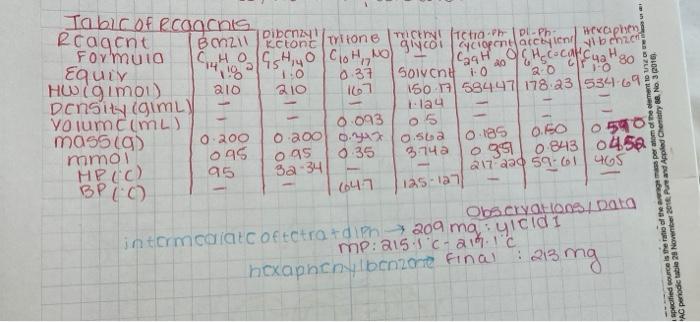 Table of Reagents
Reagent Benzil Dibenzyl Ketone Tritone triethyl glycol Tetra-Ph cyclopent Di-Ph-acetylene Hexaphenylbenzene
Formula C14H10O2 C15H14O C10H17NO - C29H20O C6H5C≡C6H5 C42H30
Equiv 1.18 1.0 0.37 Solvent 1.0 2.0 1.0
MW(g/mol) 210 210 167 150.17 384.47 178.23 534.69
Density (g/mL) - - - 1.124 - -
Volume(mL) - - 0.093 0.5 - -
mass(g) 0.200 0.200 0.562 0.185 0.50 0.590
mmol 0.95 0.95 0.35 3.742 0.843 0.452
MP(°C) 95 32-34 - 217-220 59-61 465
BP(°C) - - 125-127
Observations/Data
intermediate of tetra+diPh → 209 mg : yield I
mp: 215.1°C - 217.1°C
hexaphenylbenzene final : 213 mg
specified source is the ratio of the average mass per atom of the element to 1/12 of the mass of
PAC periodic table 28 November 2016; Pure and Applied Chemistry 88, No. 3 (2016).